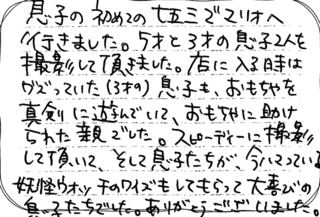 息子の初めての七五三でマリオへ
行きました。5才と3才の息子2人を
撮影して頂きました。店に入る時は
グズっていた(3才の)息子も、おもちゃを
真剣に遊んでいて、おもちゃに助け
られた親でした。スピーディーに撮影
して頂いて、そして息子たちが、今いってる
妖怪ウォッチのクイズもしてもらって大喜びの
息子たちでした。ありがとうございました。